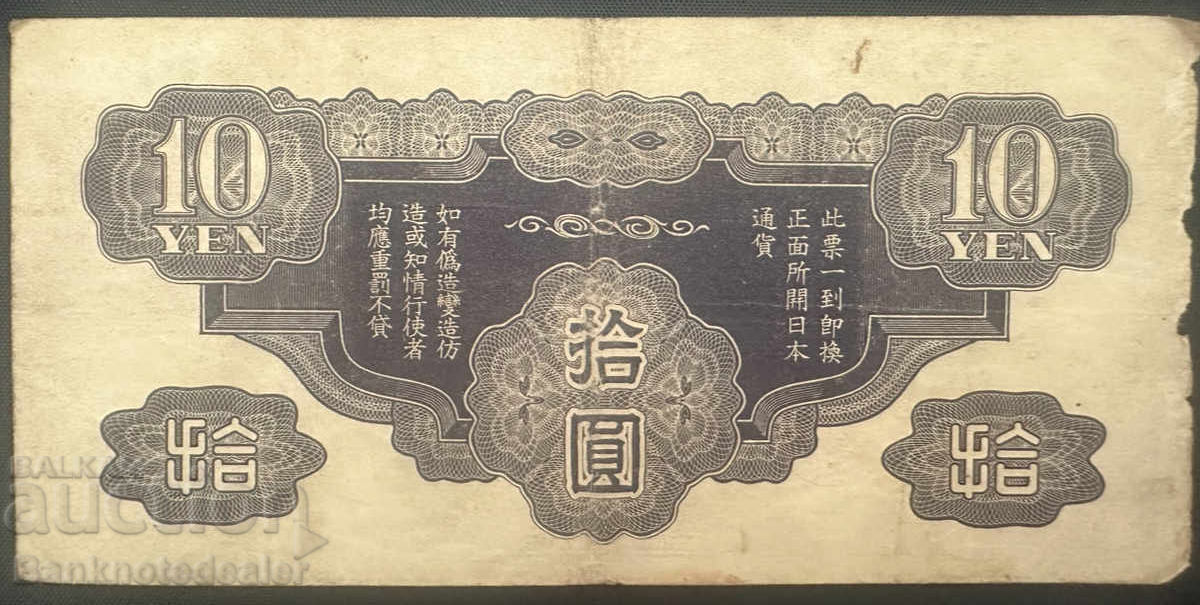 10
YEN
10
YEN
此票一到即換
正面所開日本
通貨
如有偽造變造仿
造或知情行使者
均應重罰不貸
拾
圓
拾
拾
BALKAN
auction
Banknotedealer